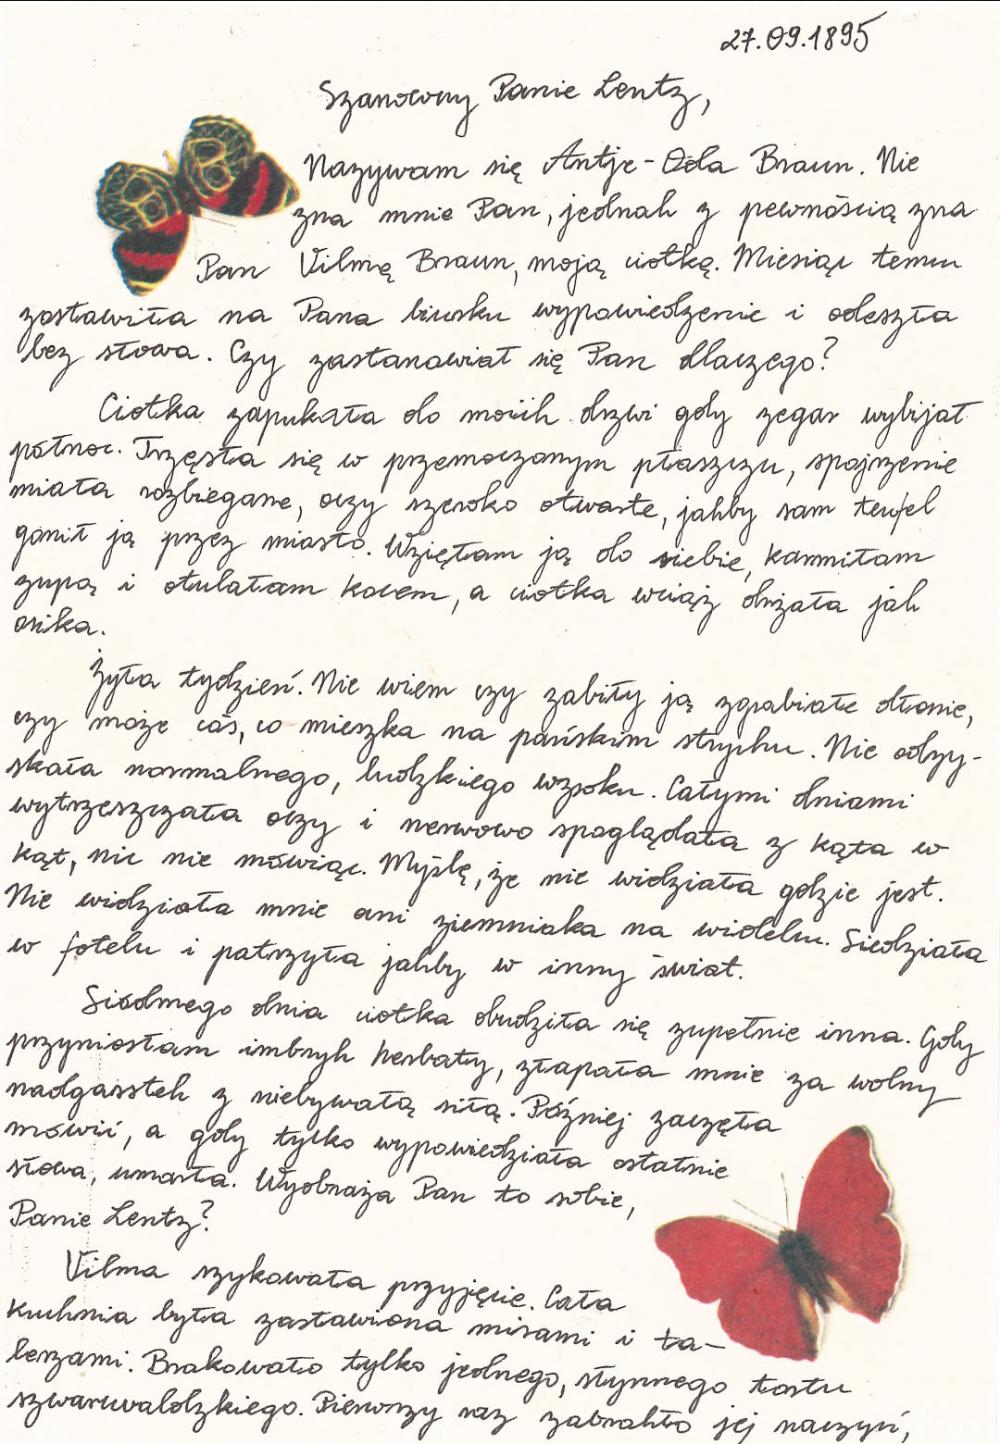 27.09.1895
Szanowny Panie Lentz,
Nazywam się Antje-Oda Braun. Nie
zna mnie Pan, jednak z pewnością zna
Pan Vilmę Braun, moją ciotkę. Miesiąc temu
zostawiła na Pana biurku wypowiedzenie i odeszła
bez słowa. Czy zastanawiał się Pan dlaczego?
Ciotka zapukała do moich drzwi gdy zegar wybijał
północ. Trzęsła się w przemoczonym płaszczu, spojrzenie
miała rozbiegane, oczy szeroko otwarte, jakby sam teufel
gonił ją przez miasto. Wzięłam ją do siebie, karmiłam
zupą i otulałam kocem, a ciotka wciąż drżała jak
osika.
Żyła tydzień. Nie wiem czy zabiły ją zgrabiałe dłonie,
czy może coś, co mieszka na pańskim strychu. Nie odzy-
skała normalnego, ludzkiego wzroku. Całymi dniami
wytrzeszczała oczy i nerwowo spoglądała z kąta w
kąt, nic nie mówiąc. Myślę, że nie widziała gdzie jest.
Nie widziała mnie ani ziemniaka na widelcu. Siedziała
w fotelu i patrzyła jakby w inny świat.
Siódmego dnia ciotka obudziła się zupełnie inna. Gdy
przyniosłam imbryk herbaty, złapała mnie za wolny
nadgarstek z niebywałą siłą. Później zaczęła
mówić, a gdy tylko wypowiedziała ostatnie
słowa, umarła. Wyobraża Pan to sobie,
Panie Lentz?
Vilma szykowała przyjęcie. Cała
kuchnia była zastawiona misami i ta-
lerzami. Brakowało tylko jednego, słynnego tortu
szwarcwaldzkiego. Pierwszy raz zabrakło jej naczyń,